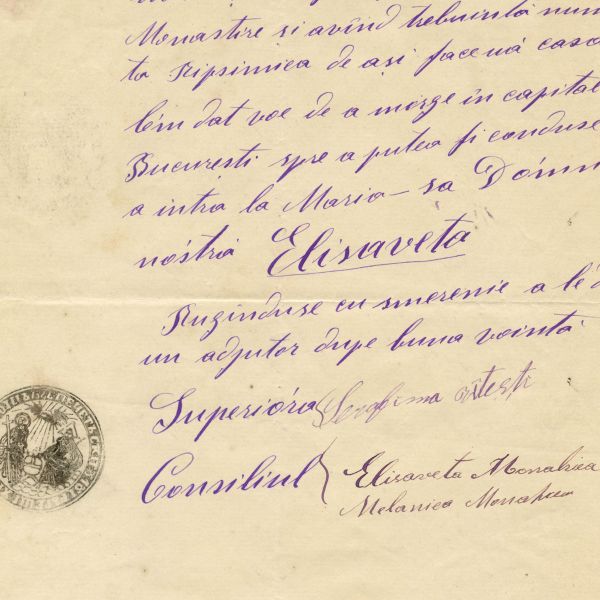 Monastire si avînd trebuintă
ta Ripsimica de ași face uă casă
lém dat voe de a merge în capital
Bucuresti spre a putea fi conduse
a intra la Maria-sa Dómn
nóstră Elisaveta
Rugînduse cu smerenie a le d
un adjutor dupe buna vointă
Superióra
Consiliul Elisaveta Monahiea
Melanica Monahiea